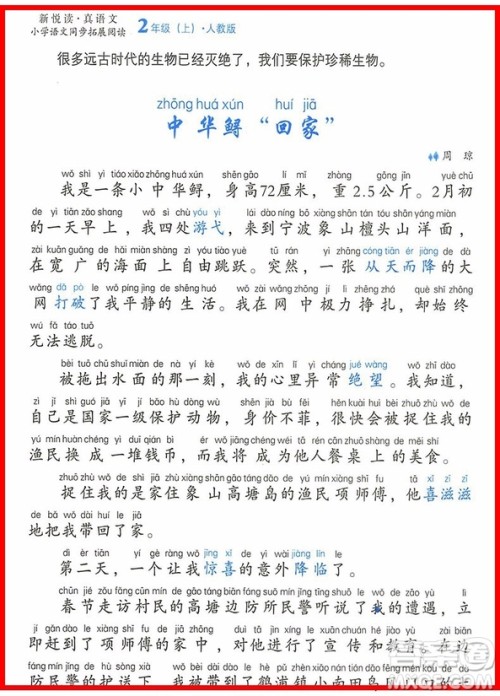 新悦读·真语文
小学语文同步拓展阅读
2年级（上）·人教版
很多远古时代的生物已经灭绝了，我们要保护珍稀生物。
zhōng huá xún huí jiā
中华鲟“回家”
周琼
wǒ shì yì tiáo xiǎo zhōng huá xún shēn gāo lí mǐ zhòng gōng jīn yuè chū
我是一条小中华鲟，身高72厘米，重2.5公斤。2月初
de yì tiān zǎo shang wǒ sì chù yóu yì lái dào níng bō xiàng shān tán tóu shān yáng miàn
的一天早上，我四处游弋，来到宁波象山檀头山洋面，
zài kuān guǎng de hǎi miàn shàng zì yóu tiào yuè tū rán yì zhāng cóng tiān ér jiàng de dà
在宽广的海面上自由跳跃。突然，一张从天而降的大
wǎng dǎ pò le wǒ píng jìng de shēng huó wǒ zài wǎng zhōng jí lì zhēng zhá què shǐ zhōng
网打破了我平静的生活。我在网中极力挣扎，却始终
wú fǎ táo tuō
无法逃脱。
bèi tuō chū shuǐ miàn de nà yí kè wǒ de xīn li yì cháng jué wàng wǒ zhī dào
被拖出水面的那一刻，我的心里异常绝望。我知道，
zì jǐ shì guó jiā yī jí bǎo hù dòng wù shēn jià bù fěi hěn kuài huì bèi zhuō zhù wǒ de
自己是国家一级保护动物，身价不菲，很快会被捉住我的
yú mín huàn chéng yì duī qián bì ér wǒ jiāng chéng wéi tā rén cān zhuō shàng de měi shí
渔民换成一堆钱币，而我将成为他人餐桌上的美食。
zhuō zhù wǒ de shì jiā zhù xiàng shān gāo táng dǎo de yú mín xiàng shī fu tā xǐ zī zī
捉住我的是家住象山高塘岛的渔民项师傅，他喜滋滋
de bǎ wǒ dài huí le jiā
地把我带回了家。
dì èr tiān yí gè ràng wǒ jīng xǐ de yì wài jiàng lín le
第二天，一个让我惊喜的意外降临了。
chūn jié zǒu fǎng cūn mín de gāo táng biān fáng suǒ mín jǐng tīng shuō le wǒ de zāo yù lì
春节走访村民的高塘边防所民警听说了我的遭遇，立
jí gǎn dào le xiàng shī fu de jiā zhōng duì tā jìn xíng le xuān chuán hé jiào yù zài
即赶到了项师傅的家中，对他进行了宣传和教育。在边